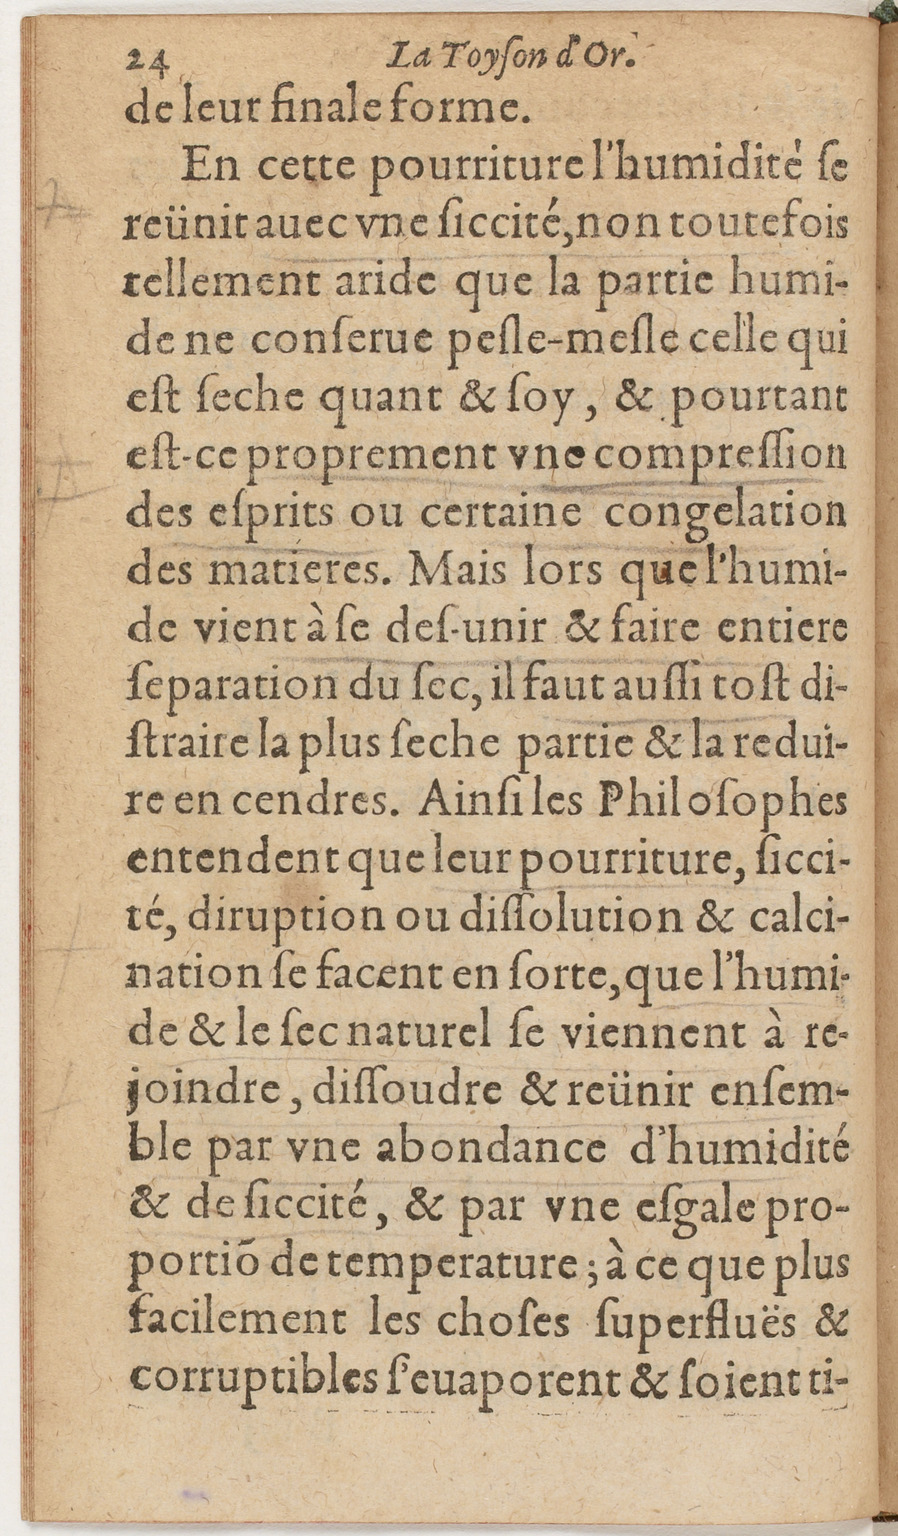 24 La Toyſon d'Or.
de leur finale forme.
En cette pourriture l'humidité ſe
reünit auec vne ſiccité, non toutefois
tellement aride que la partie humi-
de ne conſerue peſle-meſle celle qui
eſt ſeche quant & ſoy, & pourtant
eſt-ce proprement vne compreſſion
des eſprits ou certaine congelation
des matieres. Mais lors que l'humi-
de vient à ſe deſ-unir & faire entiere
ſeparation du ſec, il faut auſſi toſt di-
ſtraire la plus ſeche partie & la redui-
re en cendres. Ainſi les Philoſophes
entendent que leur pourriture, ſicci-
té, diruption ou diſſolution & calci-
nation ſe facent en ſorte, que l'humi-
de & le ſec naturel ſe viennent à re-
joindre, diſſoudre & reünir enſem-
ble par vne abondance d'humidité
& de ſiccité, & par vne eſgale pro-
portiõ de temperature ; à ce que plus
facilement les choſes ſuperfluës &
corruptibles ſ'euaporent & ſoient ti-